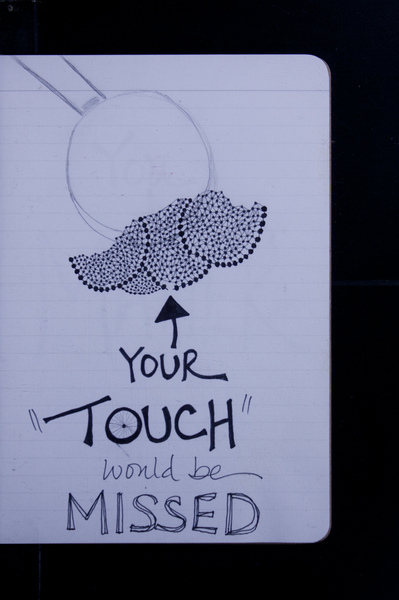 YOUR
"TOUCH"
would be
MISSED